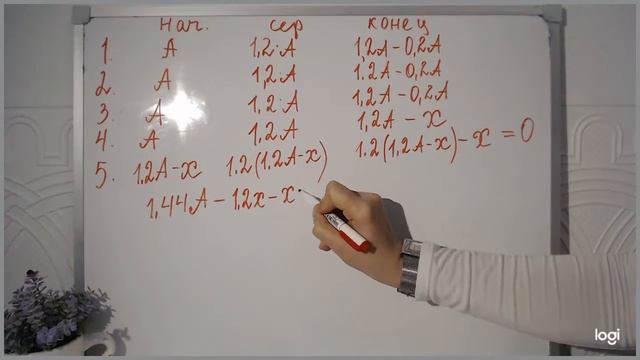 нач. сер конец
1. A 1,2·A 1,2A - 0,2A
2. A 1,2A 1.2A - 0,2A
3. A 1,2·A 1,2A - 0,2A
4. A 1,2A 1,2A - x
5. 1,2A-x 1.2(1,2A-x) 1.2(1,2A-x)-x = 0
1,44A - 1,2x - x
logi